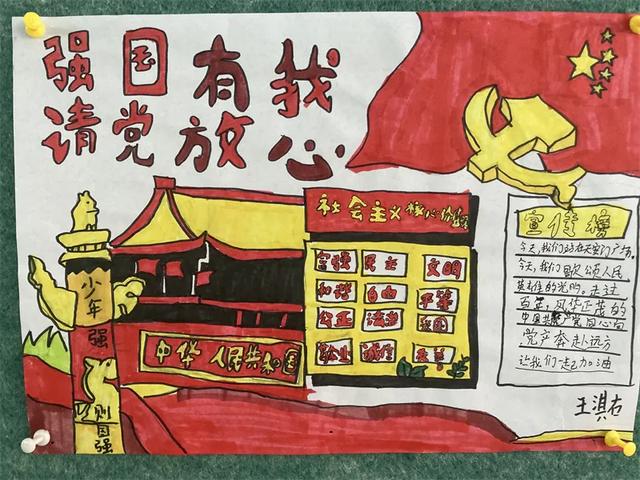 强国有我
请党放心
社会主义核心价值观
富强 民主 文明
和谐 自由 平等
公正 法治 爱国
敬业 诚信 友善
中华人民共和国
少年强
则国强
宣传榜
今天,我们站在天安门广场。
今天,我们歌颂人民
英雄的光明。走过
百年,风华正茂的
中国共产党同心向
党产奔赴远方
让我们一起加油
王淇右